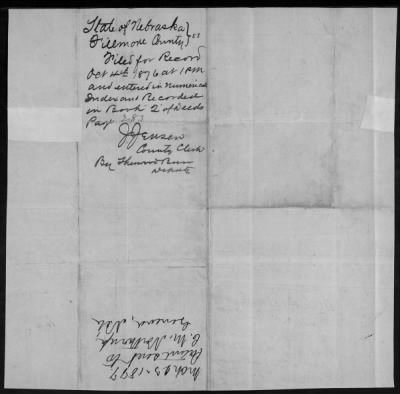 State of Nebraska }
Fillmore County } ss
Filed for Record
Oct 4th 1876 at 1 PM
and entered in Numerical
Index and Recorded
in Book 2 of Deeds
Page 283
J Jensen
County Clerk
By
Deputy
Mch 25 - 1897
sent to
C. M.
Geneva, Neb